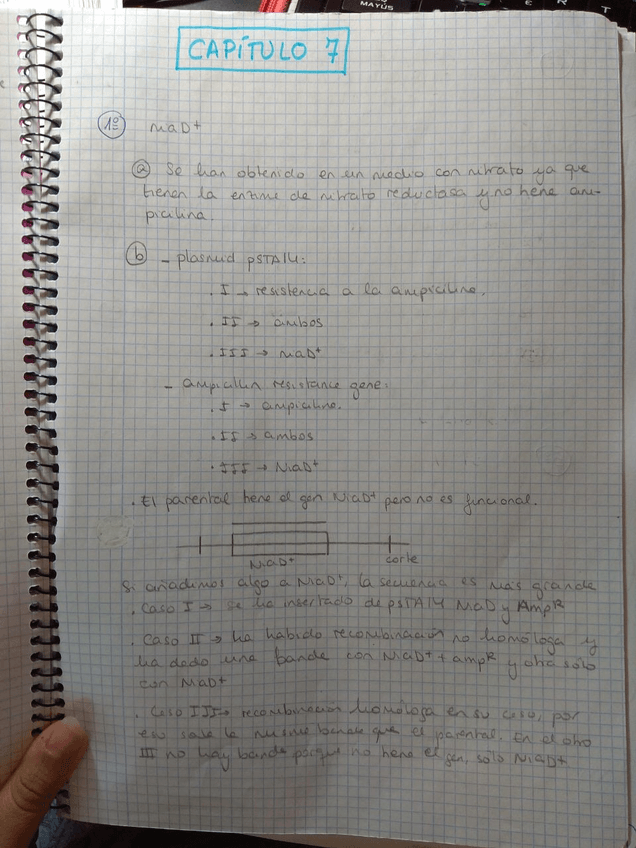 MAYÚS
E R T
CAPÍTULO 7
1º niaD+
a Se han obtenido en un medio con nitrato ya que
tienen la enzima de nitrato reductasa y no tiene am-
picilina.
b - plasmid pSTA14:
· I → resistencia a la ampicilina.
· II → ambos
· III → niaD+
- ampicillin resistance gene:
· I → ampicilina.
· II → ambos
· III → NiaD+
· El parental tiene el gen NiaD+ pero no es funcional.
NiaD+ corte
Si añadimos algo a NiaD+, la secuencia es más grande
· Caso I → se ha insertado de pSTA14 NiaD y AmpR
· Caso II → ha habido recombinación no homóloga y
ha dado una banda con NiaD+ + ampR y otra sólo
con NiaD+
· Caso III → recombinación homóloga en su caso, por
eso sale la misma banda que el parental. En el otro
III no hay banda porque no tiene el gen, sólo NiaD+